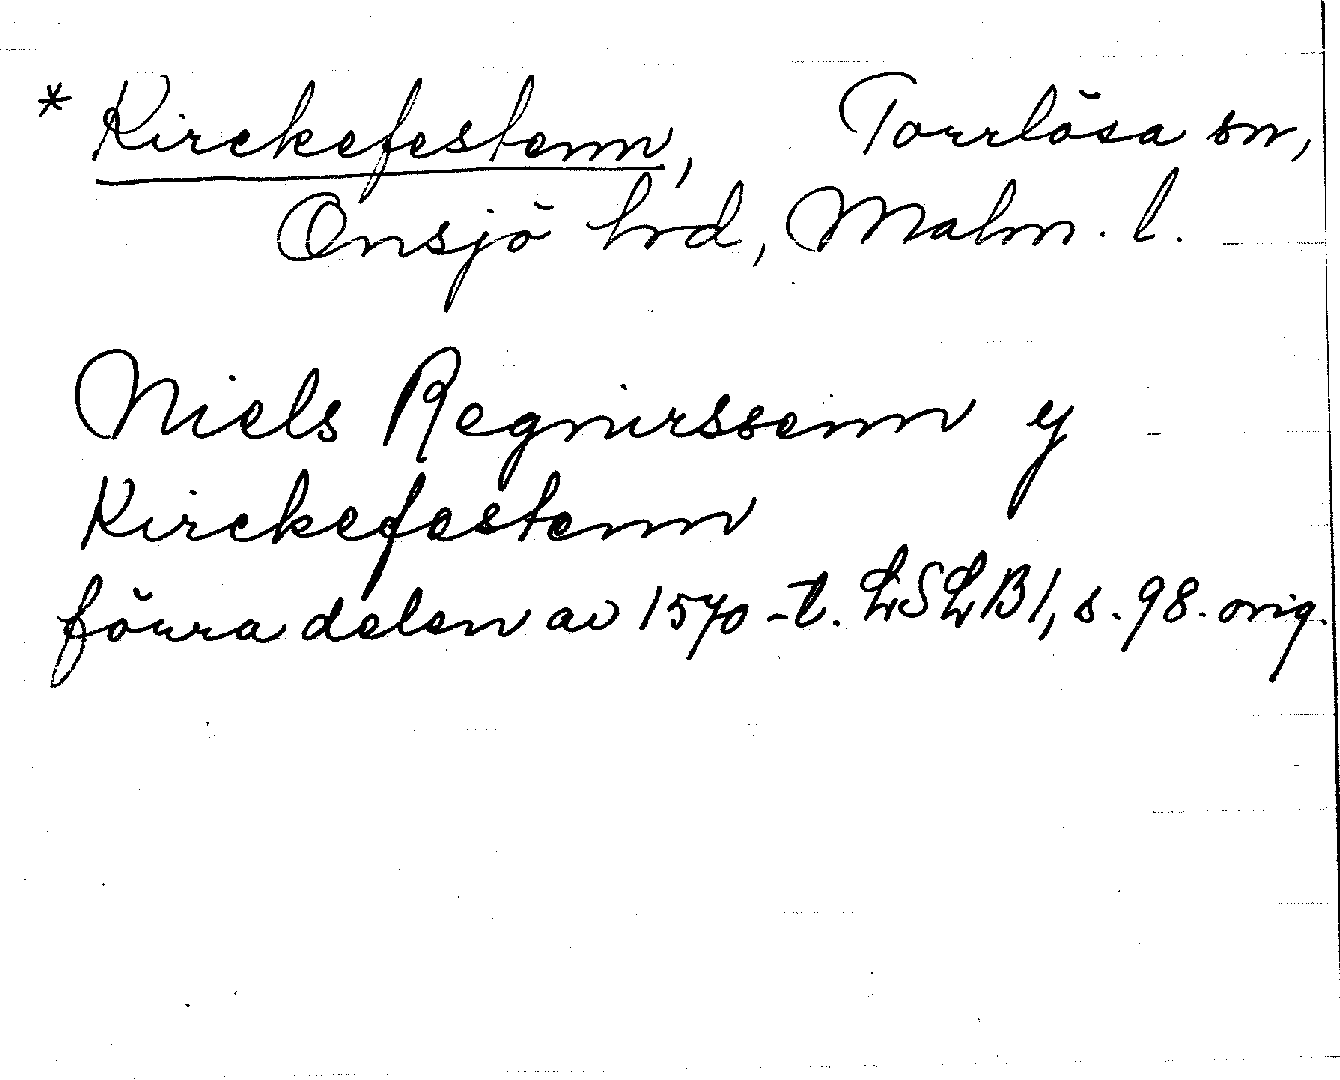 * Kirckefestenn, Torrlösa sn,
Onsjö hrd, Malm. l.
Niels Regnurssenn y
Kirckefestenn
förra delen av 1570-t. LSLB1, s. 98. orig.